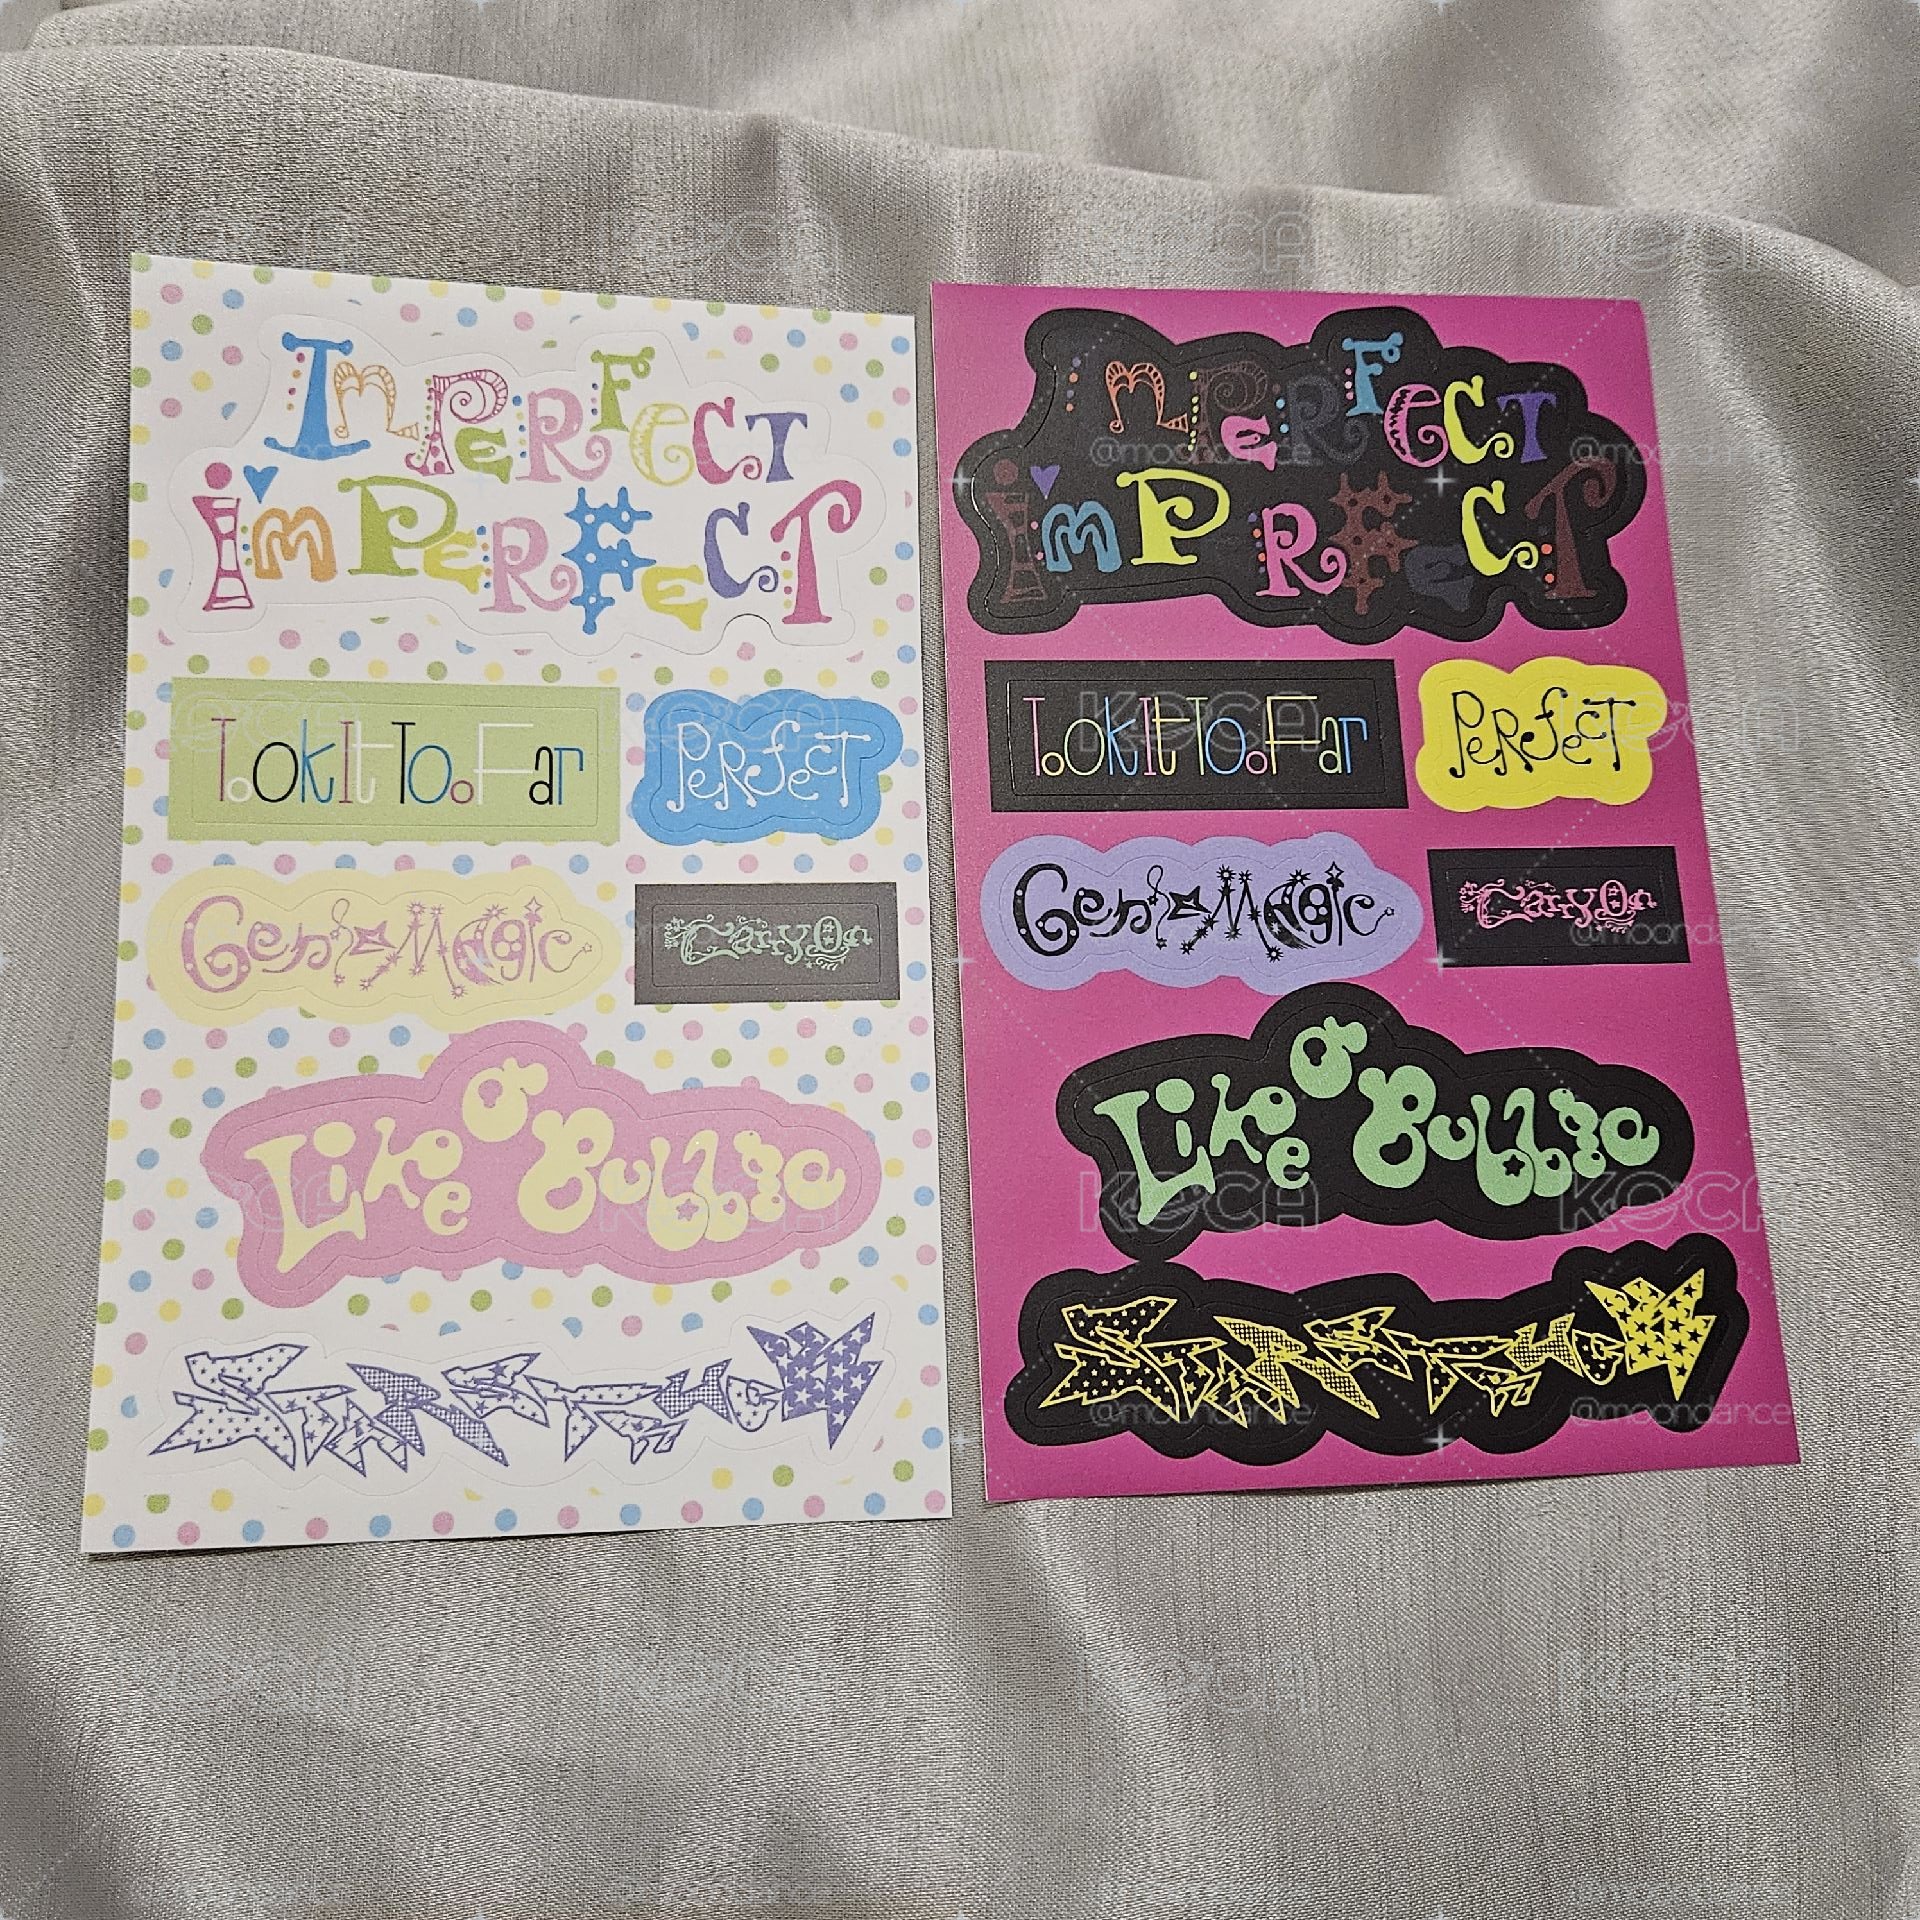 ImPeRFeCT
imPeRFeCT
TookItToo Far
PeRfecT
Gen&Magic
CarryOn
Like a Bubble
ImPeRFeCT
imPeRFeCT
TookItToo Far
PeRfecT
Gen&Magic
CarryOn
Like a Bubble
KOCA
@moondance